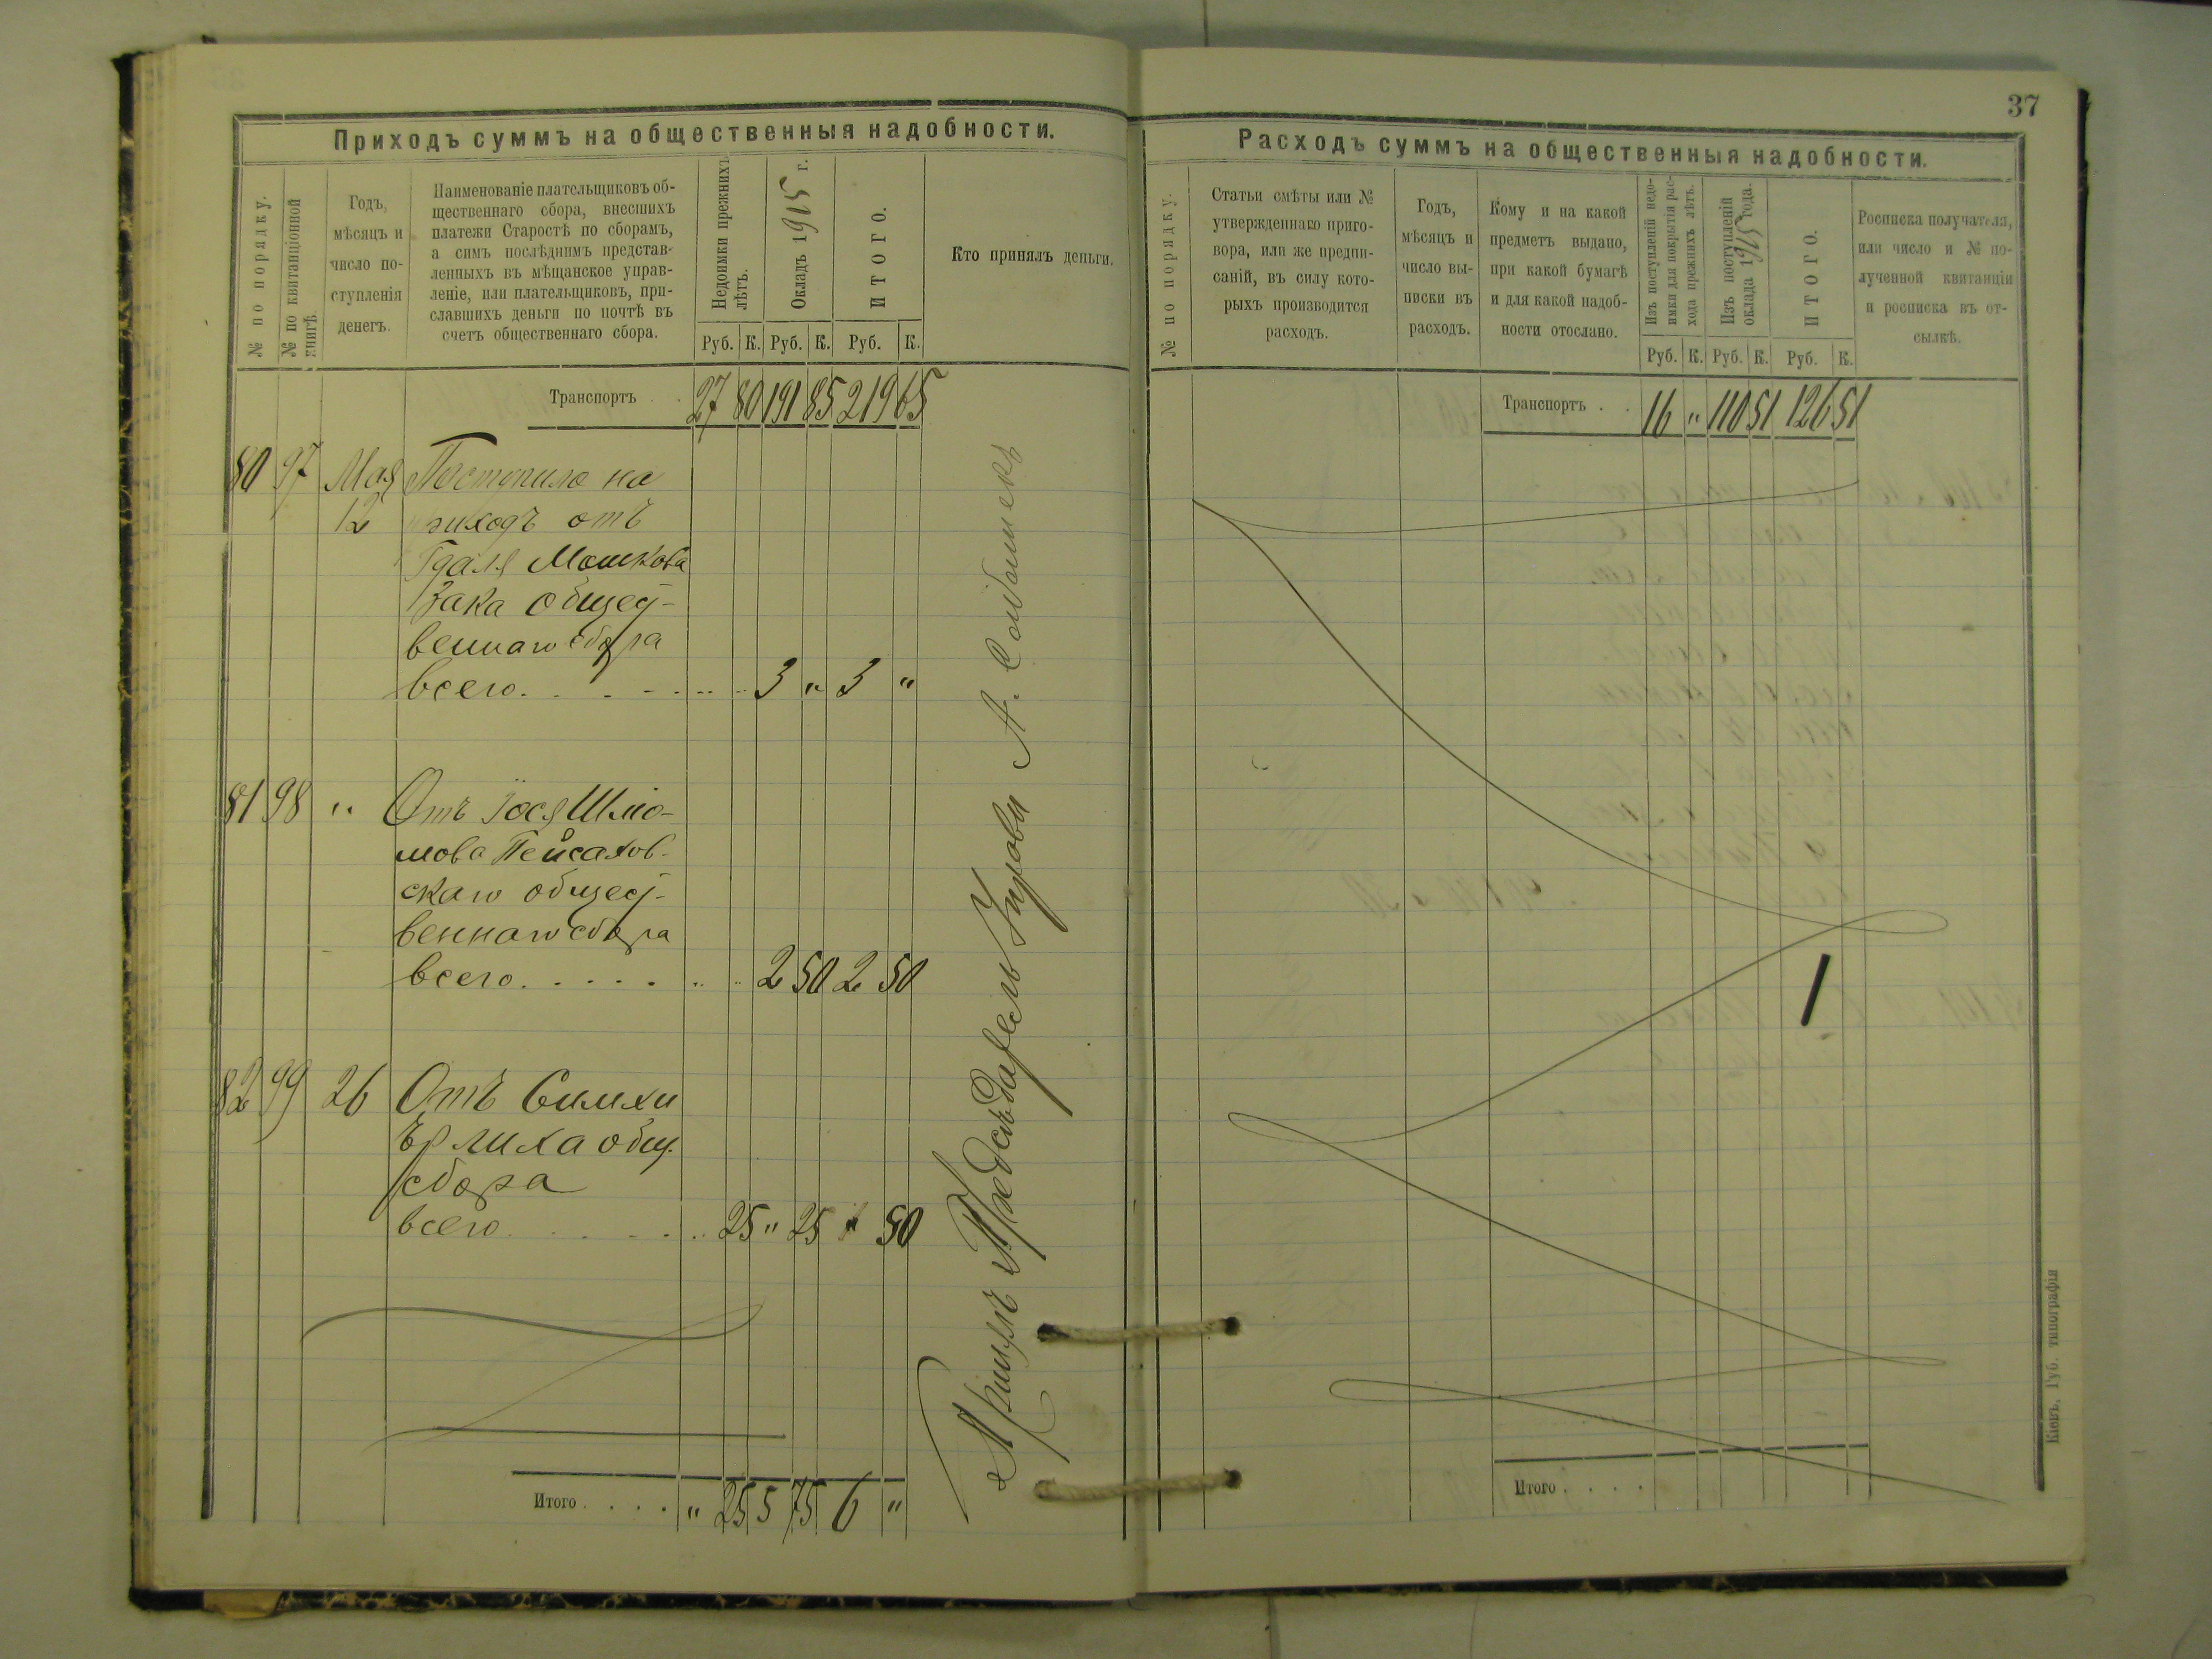 Приходъ суммъ на общественныя надобности.
№ по порядку.
№ по квитанціонной
книгѣ.
Годъ,
мѣсяцъ и
число по-
ступленія
денегъ.
Наименованіе плательщиковъ об-
щественнаго сбора, внесшихъ
платежи Старостѣ по сборамъ,
а симъ послѣднимъ представ-
ленныхъ въ мѣщанское управ-
леніе, или плательщиковъ, при-
славшихъ деньги по почтѣ въ
счетъ общественнаго сбора.
Недоимки прежнихъ
лѣтъ.
Окладъ 1915 г.
ИТОГО.
Кто принялъ деньги.
Руб. К. Руб. К. Руб. К.
Транспортъ . . 27 80 191 85 219 65
80 97 Мая Поступило на
12 приходъ отъ
Гдаля Мошкова
Зака общест-
веннаго сбора
всего. . . . . . . 3 " 3 "
81 98 " Отъ Іося Шліо-
мова Пейсахов-
скаго общест-
веннаго сбора
всего. . . . . . . 2 50 2 50
82 99 26 Отъ Симхи
Эрлиха общ.
сбора
всего. . . . . . . 25 " 25 " 50
Итого . . . . " 25 5 75 6 "
Предсѣдатель
37
Расходъ суммъ на общественныя надобности.
№ по порядку.
Статьи смѣты или №
утвержденнаго приго-
вора, или же предпи-
саній, въ силу кото-
рыхъ производится
расходъ.
Годъ,
мѣсяцъ и
число вы-
писки въ
расходъ.
Кому и на какой
предметъ выдано,
при какой бумагѣ
и для какой надоб-
ности отослано.
Изъ поступленій недо-
имки для покрытія рас-
хода прежнихъ лѣтъ.
Изъ поступленій
оклада 1915 года.
ИТОГО.
Росписка получателя,
или число и № по-
лученной квитанціи
и росписка въ от-
сылкѣ.
Руб. К. Руб. К. Руб. К.
Транспортъ . . 16 " 110 51 126 51
Итого . . . .
Кіевъ, Губ. типографія